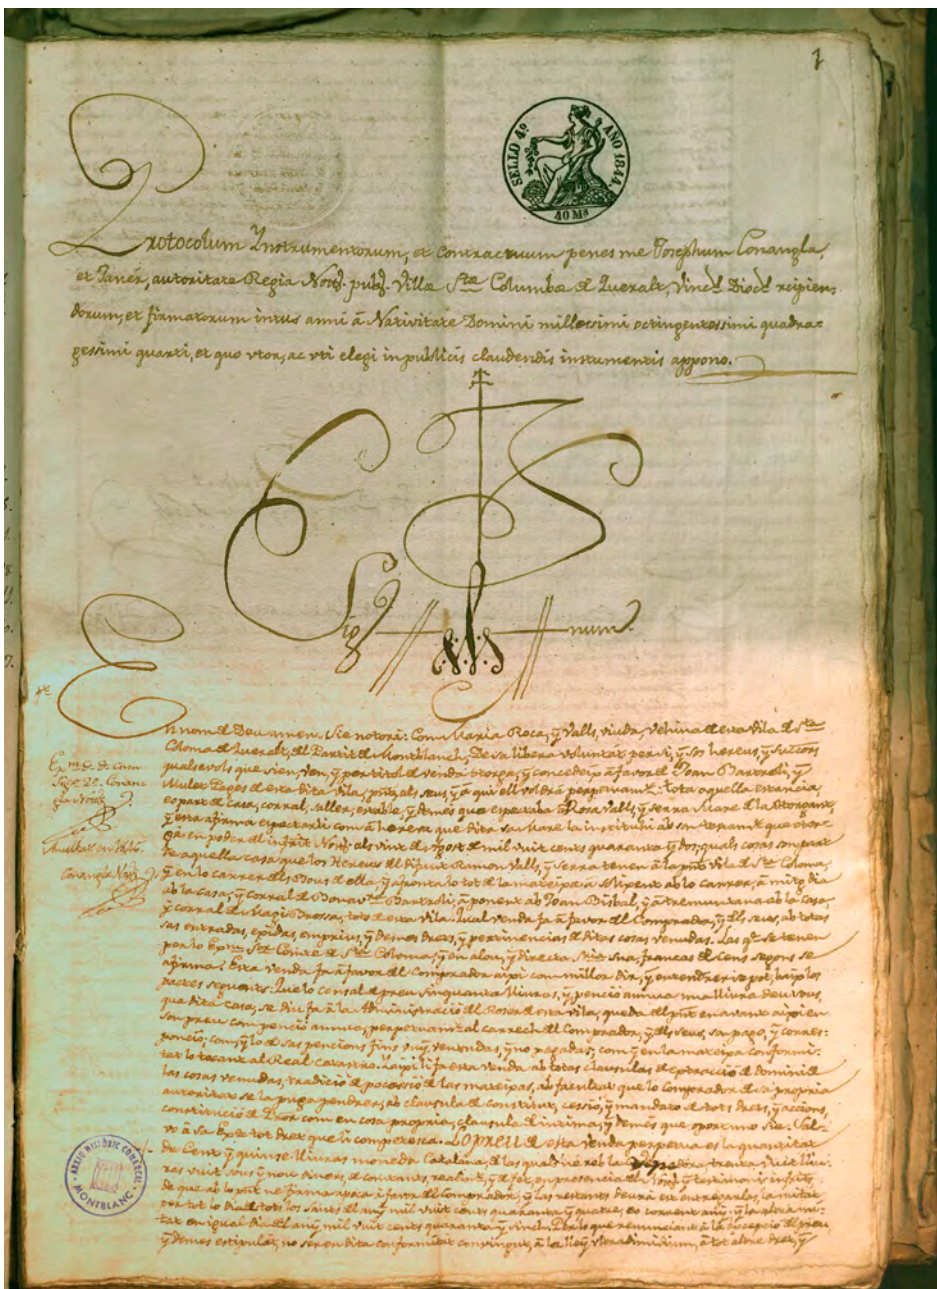 1
SELLO 4º AÑO 1844
40 Ms
Protocolum Instrumentorum, et Contractuum penes me Josephum Conangla,
et Janér, autoritate Regia Noty. puby. Villæ Sta Columbæ de Queralt, Diod recipien=
dorum, et firmatorum intus anni à Nativitate Domini millessimi octingentessimi quadra=
gessimi quarti, et quo utor, ac uti elegi in publicis claudendis instrumentis appono.
Sig num.
En nom de Deu amen. Sie notori: Com Maria Roca, y Valls, viuda, vehina de esta Vila de Sta
Coloma de Queralt, del Partit de Montblanch, De sa libera voluntat per si, y sos hereus, y successors
qualsevols que sien, ven, y per titol de venda otorga, y concedeix à favor de Joan Bartroli, y
Mulet Pages de esta dita Vila, y als seus, y à qui ell voldrà perpetuament: tota aquella estancia,
eo part de casa, corral, saller, estable, y demes que espectaba à Rosa Valls, y Serra Mare de la otorgant,
y esta afirma espectarli com à hereva que dita sa Mare la instituhi ab son testament que otor=
gà en poder del infrit Noty. als vint de Agost de mil vuit cents quaranta y dos; quals cosas son part
de aquella casa que los Hereus del difunt Ramon Valls, y Serra tenen à la pnt vila de Sta Coloma,
y en lo carrer dels Bous de ella, y afronta lo tot de la mateixa à solixent ab lo carrer, à mitg dia
ab la casa, y corral de Bonavra Bartroli, à ponent ab Joan Bisbal, y à tremuntana ab la casa,
y corral de Magi Brossa, tots de esta vila. Qual venda fa à favor del Comprador, y dels seus, ab totas
sas entradas, exidas, emprius, y demes drets, y pertinencias de ditas cosas venudas. Las qs. se tenen
per lo Exm. Sor. Comte de Sta Coloma, y en alou, y directa sua, francas de cens segons se
afirma? Esta venda fa à favor del Comprador aixi com millor dir, y entendrerse pot, baix los
pactes seguents: Que lo censal de preu sinquanta lliuras, y penció annua una lliura deu sous,
que dita casa, se diu fa à la Administració del Roser de esta vila, queda del pnt en avant aixi en
son preu com penció annua, perpetuament al carrech del Comprador, y dels seus, son pago, y corres=
ponció; com, y lo de sas pencions fins vuy vensudas, y no pagadas; com y en la mateixa conformi=
tat lo tocant al Real catastro. Y aixi li fa esta venda ab totas clausulas de extracció de domini de
las cosas venudas, tradició de possessió de las mateixas, ab facultat que lo Comprador de sa propria
autoritat se la puga pendrer, ab clausula de constitut, cessió, y mandato de tots drets, y accions,
constitució de Pror com en cosa propria, clausula de intima, y demés que oportuno sie. Sal=
vo à sa Exa tot dret que li competesca. Lo preu de esta venda perpetua es la quantitat
de Cent y quinse lliuras moneda Catalana, de las quals ne reb la trenta vuit lliu=
ras vuit sous y nou diners, de contants, realmt, y de fet, en presencia del Noty. y testimonis infrits,
de que ab lo pnt ne firma apoca à favor del Comprador; y las restants deurà est entregarlas, la mitat
per tot lo dia de tots los Sants del any mil vuit cents quaranta y quatre, eo corrent any: y la altra mi=
tat en igual dia del any mil vuit cents quaranta y sinch. Per lo que renunciant à la excepció del preu,
y demes estipulat, no ser en dita conformitat convingut, à la lley ultra dimidium, à tot altre dret, y
ARXIU HISTÒRIC COMARCAL
MONTBLANC